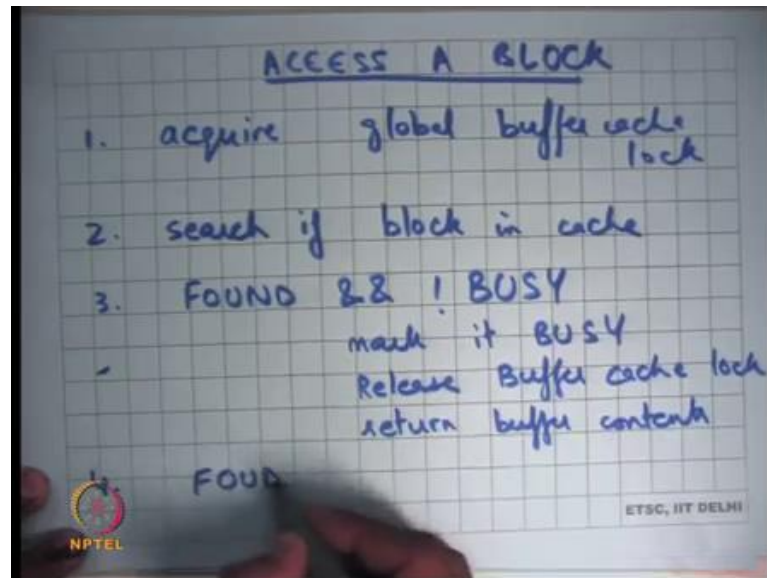 ACCESS A BLOCK
1. acquire global buffer cache
lock
2. search if block in cache
3. FOUND && ! BUSY
mark it BUSY
Release Buffer cache lock
return buffer contents
4. FOUD
ETSC, IIT DELHI
NPTEL